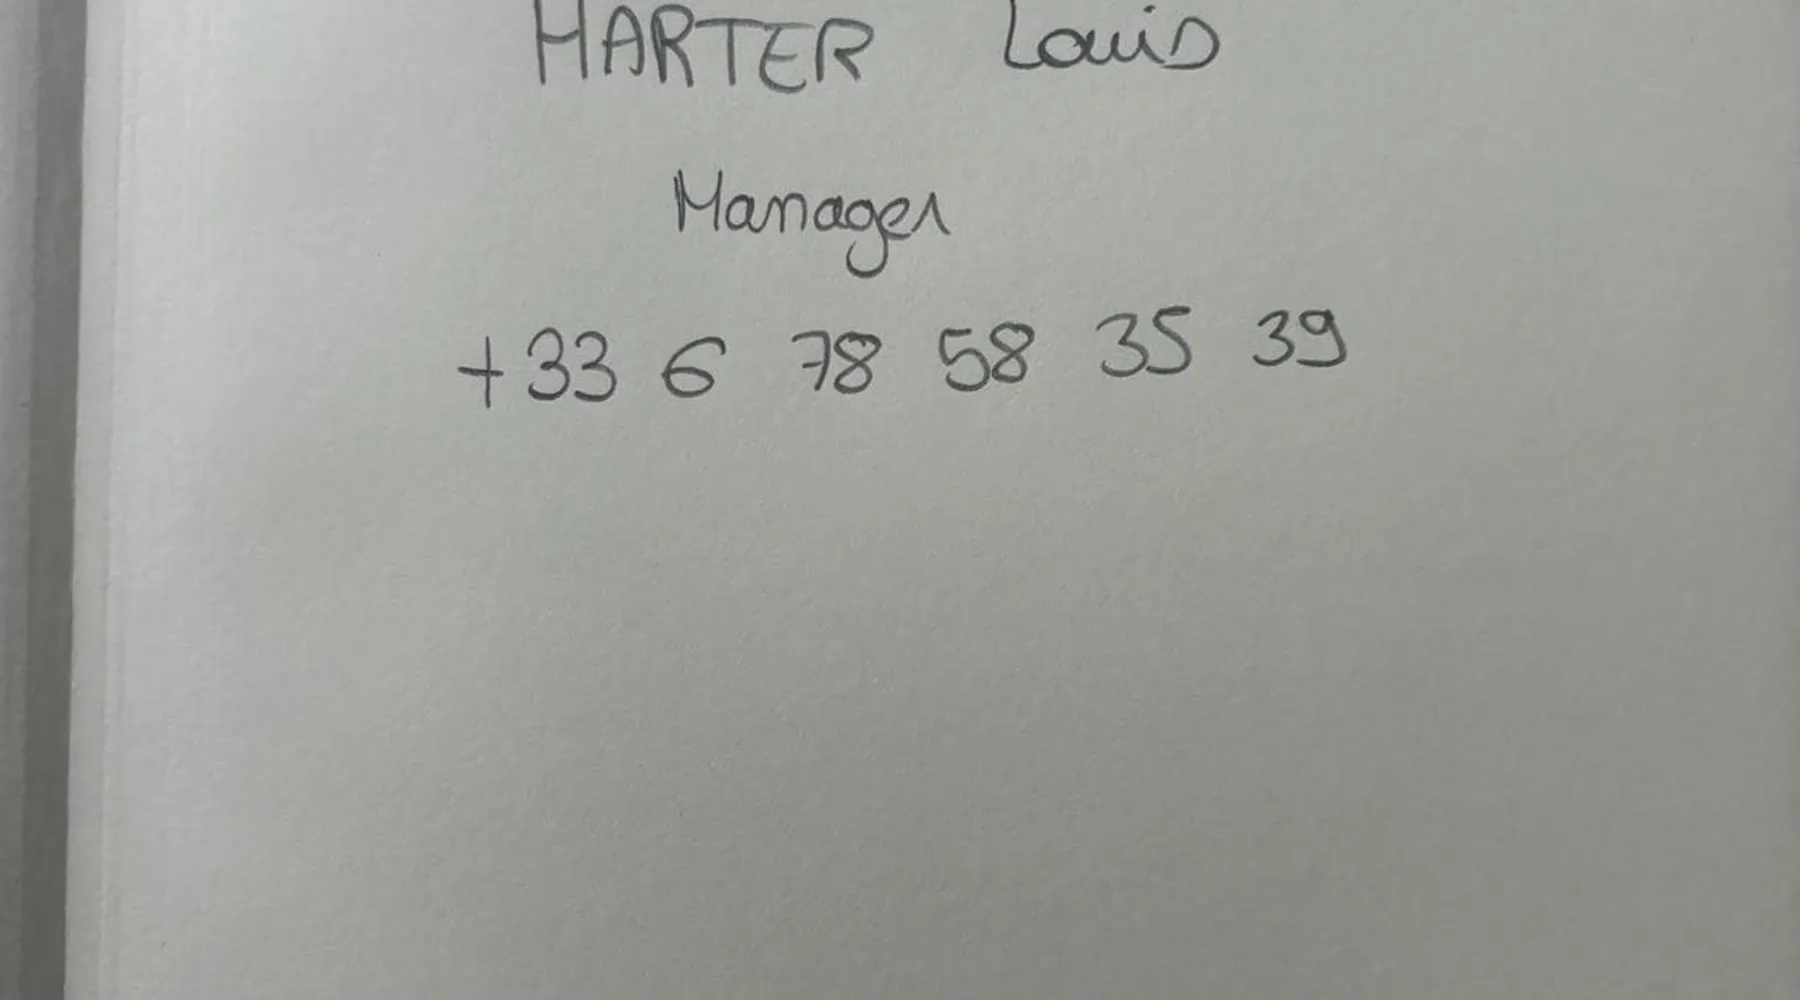 HARTER Louis
Manager
+33 6 78 58 35 39